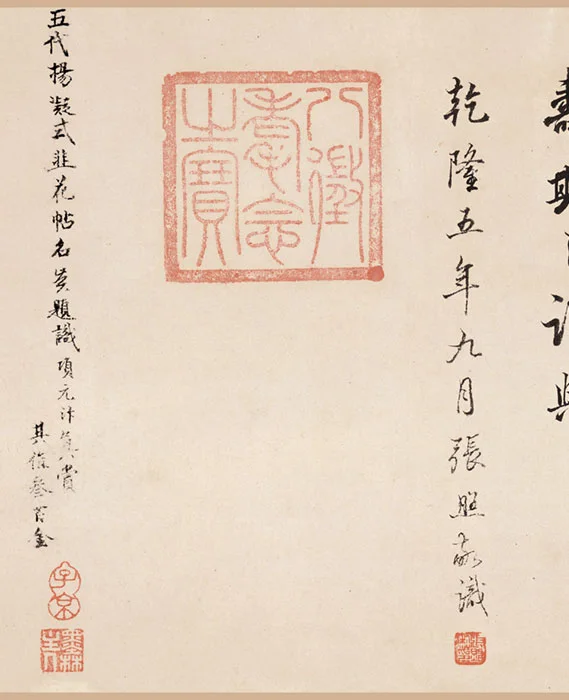 乾隆五年九月張照敬識
八徵耄念之寶
五代楊凝式韭花帖名賢題識項元汴真賞
其值叁百金
子京